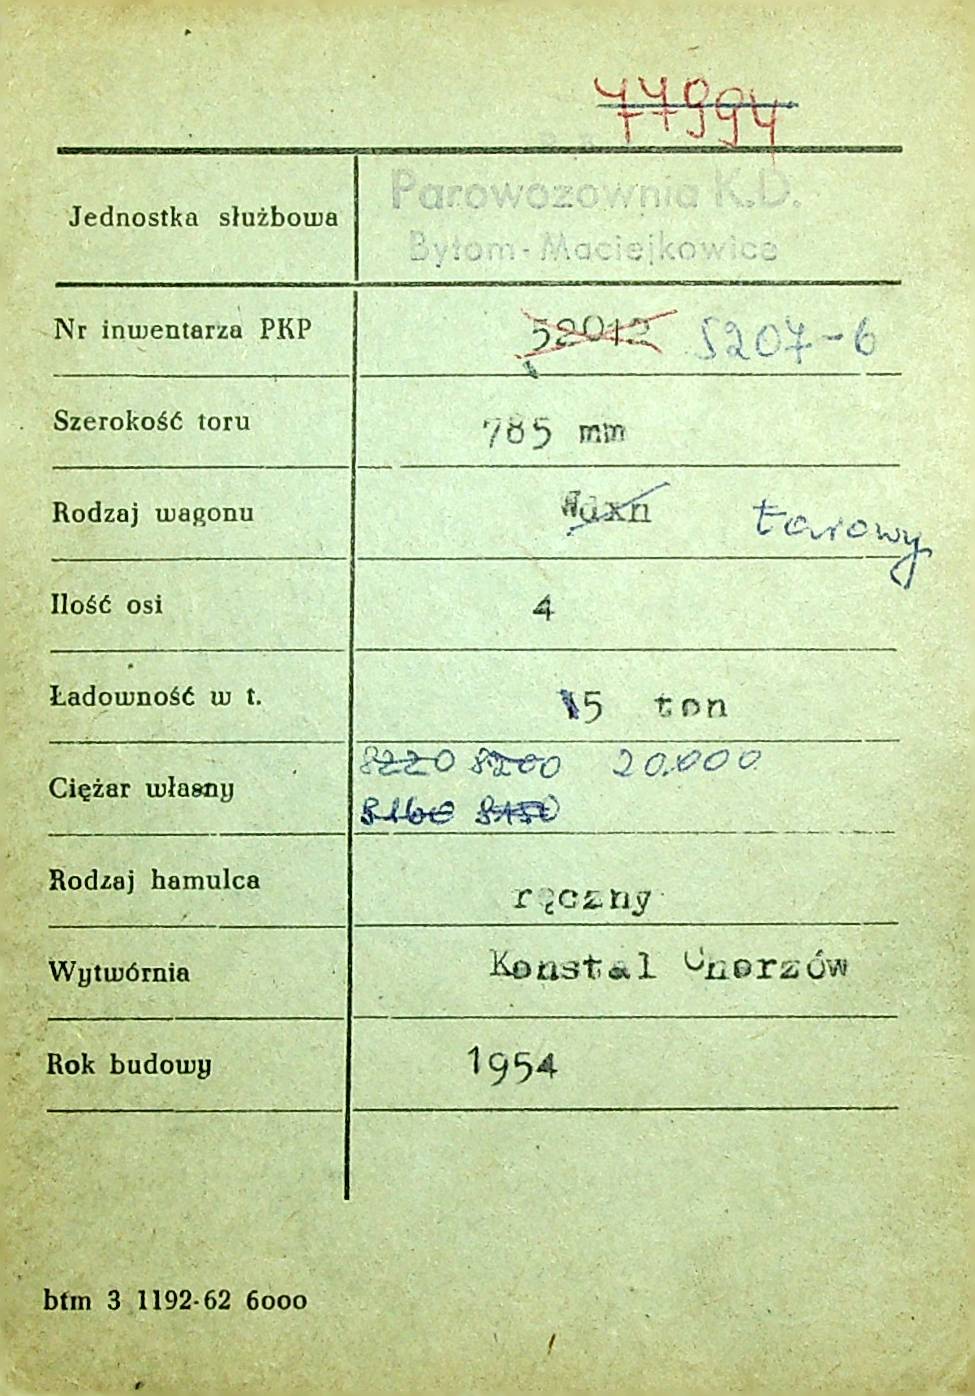 77994
Parowozownia K.D.
Jednostka służbowa
Bytom-Maciejkowice
Nr inwentarza PKP 52012 5207-6
Szerokość toru 785 mm
Rodzaj wagonu Wdxn tarowy
Ilość osi 4
Ładowność w t. 15 ton
8220 8200 20.000
Ciężar własny
8160 8150
Rodzaj hamulca ręczny
Wytwórnia Konstal Chorzów
Rok budowy 1954
btm 3 1192-62 6000